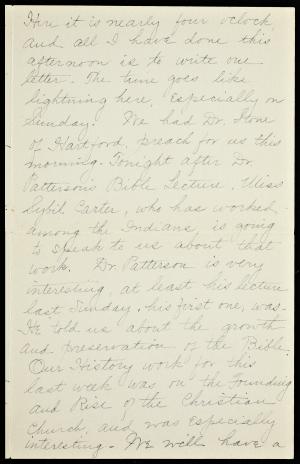 Here it is nearly four o'clock
and all I have done this
afternoon is to write one
letter. The time goes like
lightning here, especially on
Sunday. We had Dr. Stone
of Hartford, preach for us this
morning. Tonight after Dr.
Patterson's Bible Lecture, Miss
Sybil Carter, who has worked
among the Indians, is going
to speak to us about that
work. Dr. Patterson is very
interesting, at least his lecture
last Sunday, his first one, was.
He told us about the growth
and preservation of the Bible.
Our History work for this
last week was on the Founding
and Rise of the Christian
Church, and was especially
interesting. We will have a